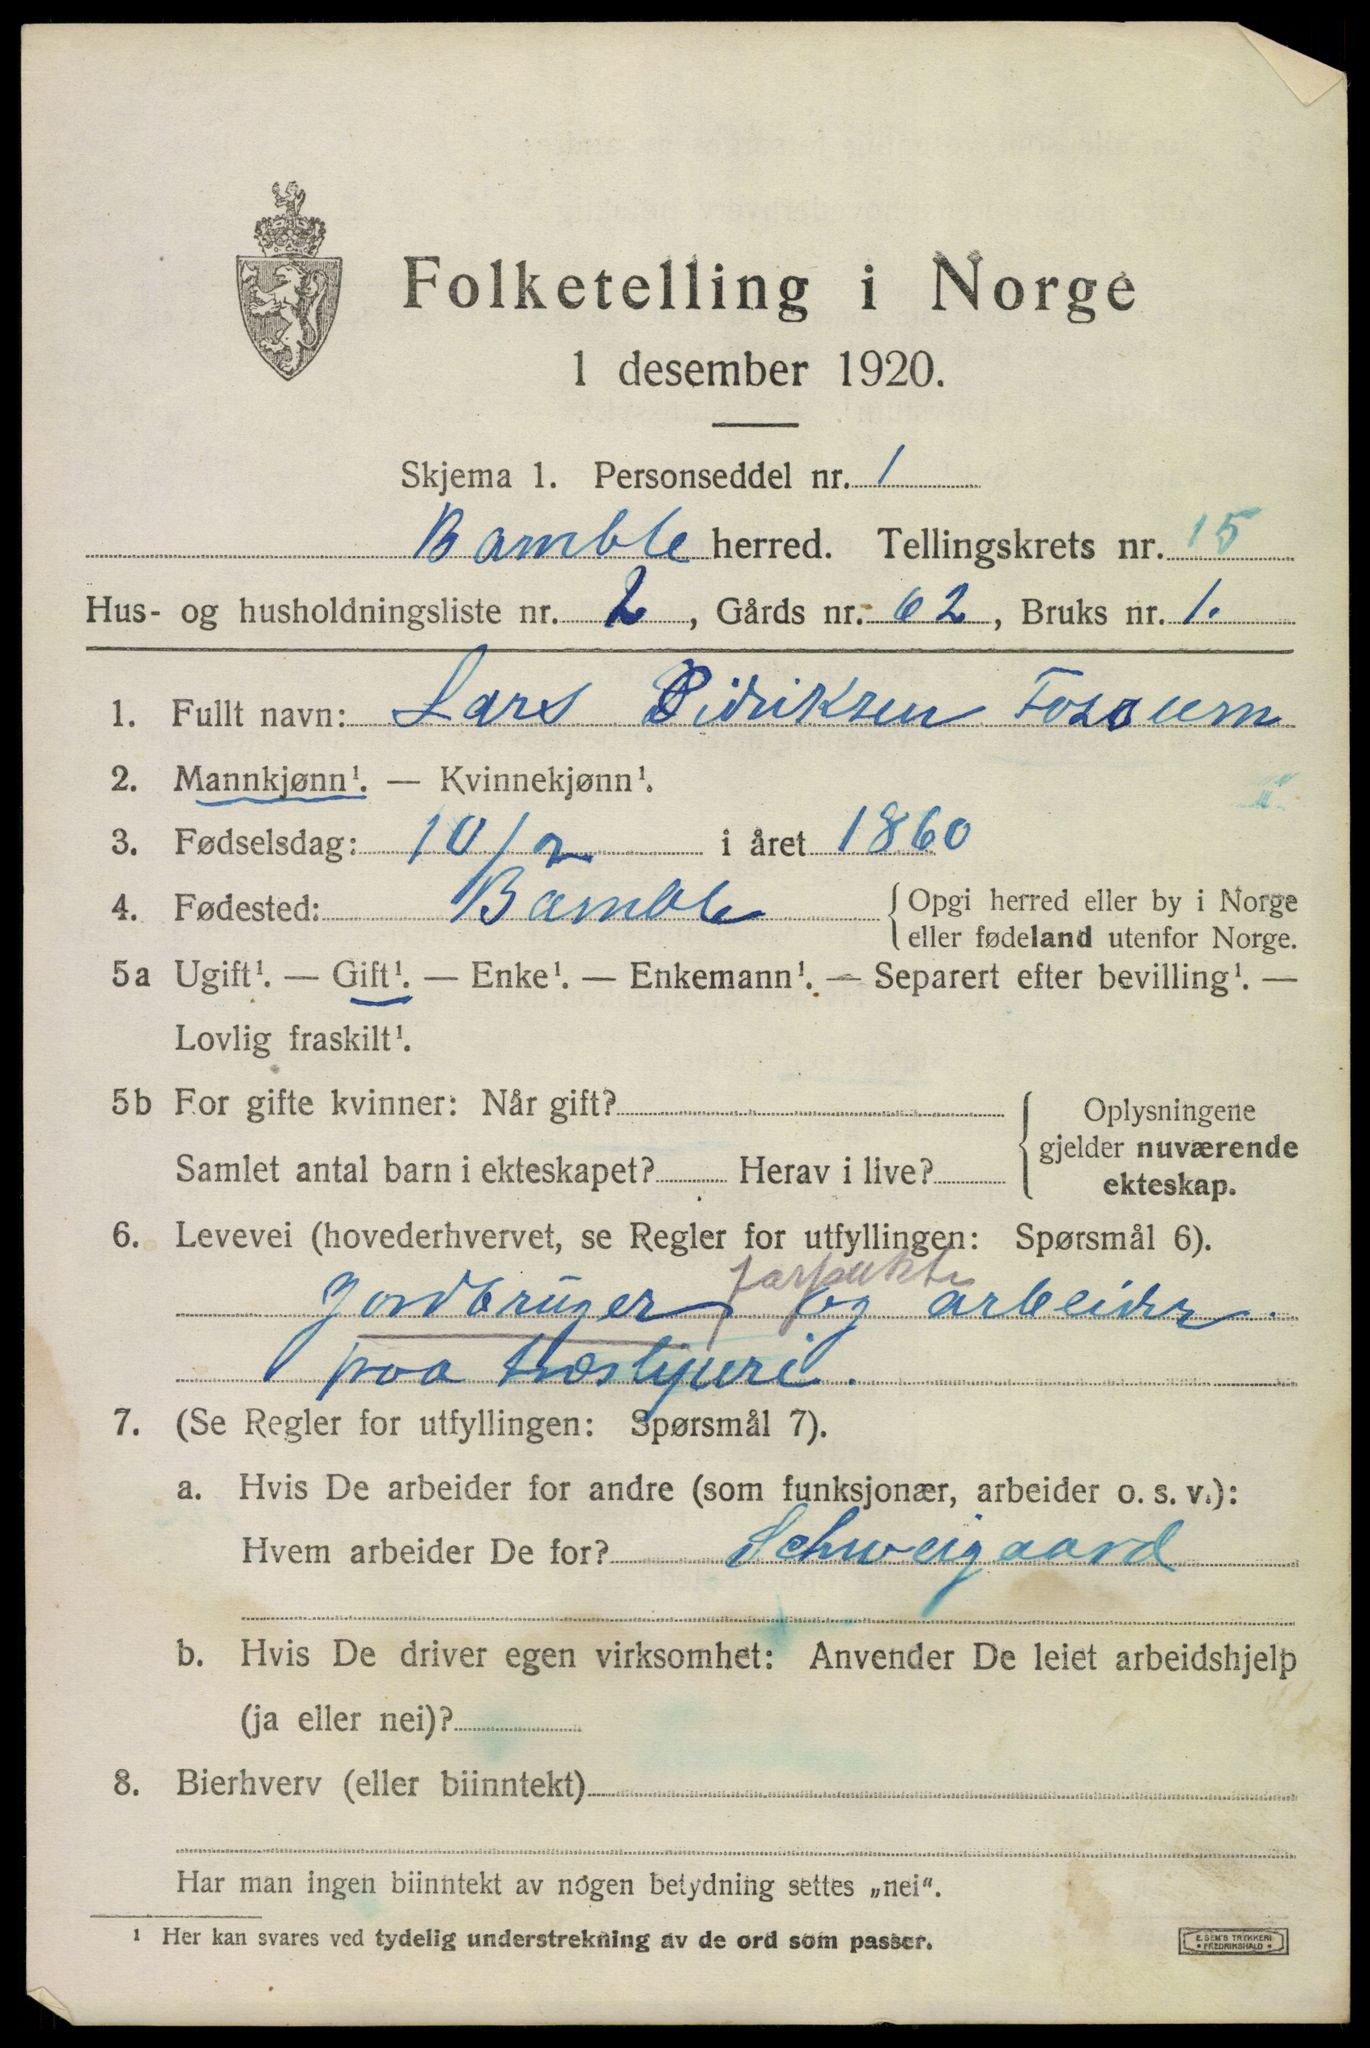 Folketelling i Norge
1 desember 1920.
Skjema 1. Personseddel nr. 1
Bamble herred. Tellingskrets nr. 15
Hus- og husholdningsliste nr. 2, Gårds nr. 62, Bruks nr. 1.
1. Fullt navn: Lars Didriksen Fossum
2. Mannkjønn¹. — Kvinnekjønn¹.
3. Fødselsdag: 10/2 i året 1860
4. Fødested: Bamble {Opgi herred eller by i Norge
eller fødeland utenfor Norge.
5a Ugift¹. — Gift¹. — Enke¹. — Enkemann¹. — Separert efter bevilling¹. —
Lovlig fraskilt¹.
5b For gifte kvinner: Når gift?
Samlet antal barn i ekteskapet? Herav i live?
{Oplysningene
gjelder nuværende
ekteskap.
6. Levevei (hovederhvervet, se Regler for utfyllingen: Spørsmål 6).
forpakter
Jordbruger og arbeider
paa træsliperi.
7. (Se Regler for utfyllingen: Spørsmål 7).
a. Hvis De arbeider for andre (som funksjonær, arbeider o. s. v.):
Hvem arbeider De for? Schweigaard
b. Hvis De driver egen virksomhet: Anvender De leiet arbeidshjelp
(ja eller nei)?
8. Bierhverv (eller biinntekt)
Har man ingen biinntekt av nogen betydning settes „nei".
¹ Her kan svares ved tydelig understrekning av de ord som passer.
E. SEM'S TRYKKERI
FREDRIKSHALD